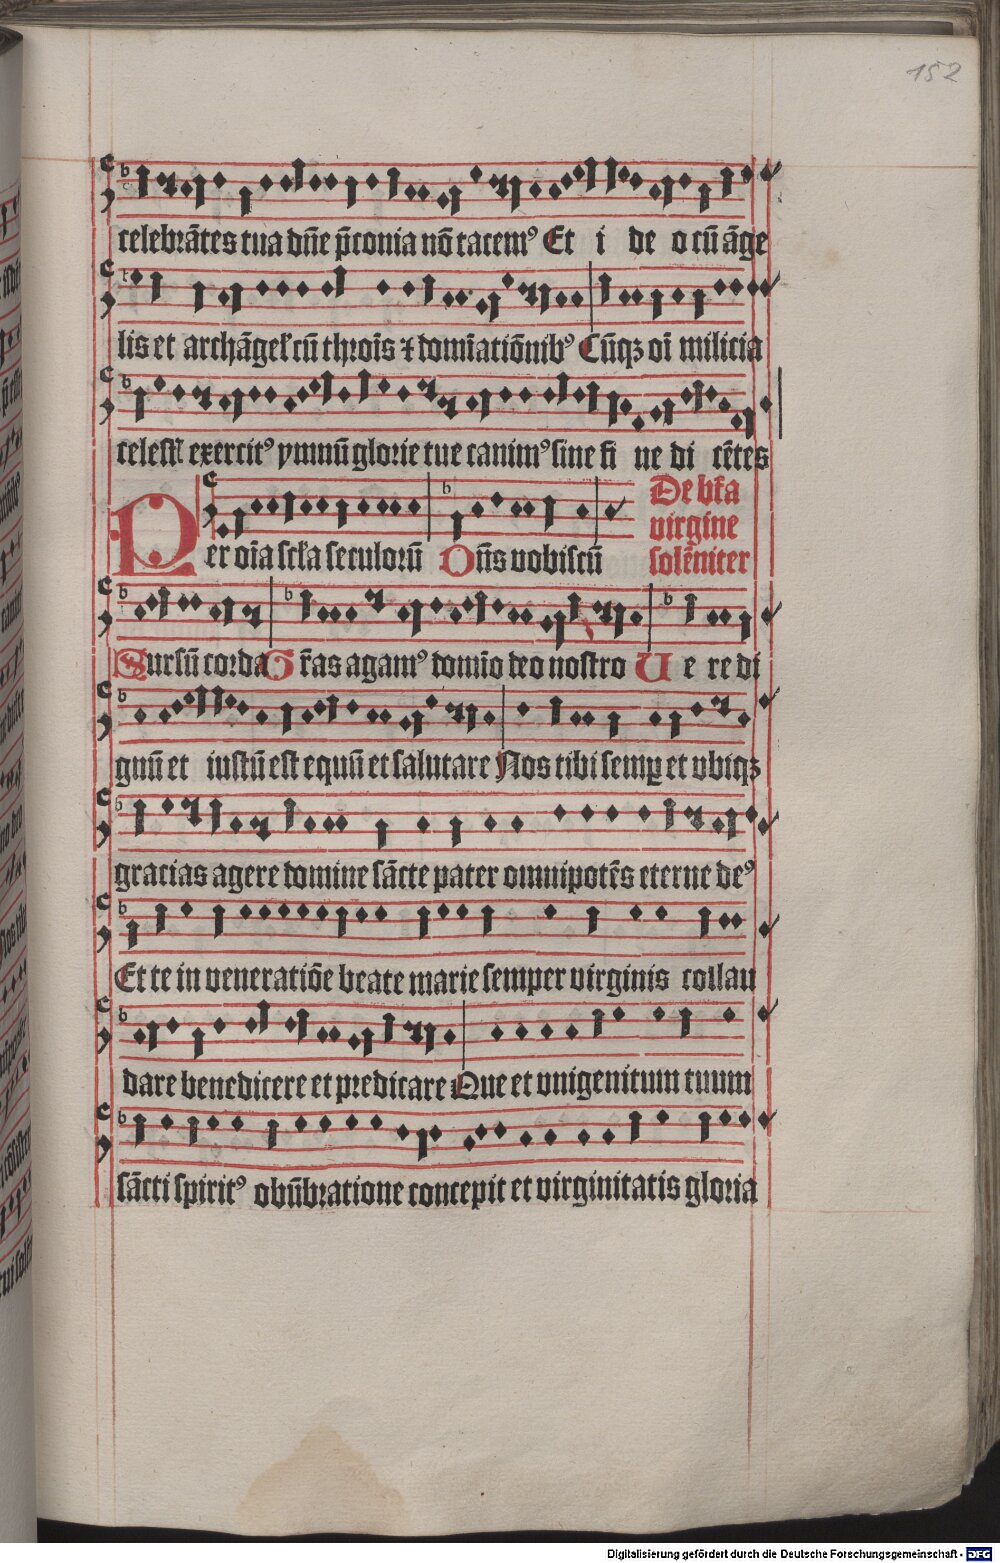 152
celebrātes tua dn̄e p̄conia nō tacemꝰ Et i de o cū āge
lis et archāgel̕ cū thr̄ois ⁊ domīatiōnibꝰ Cūqꝫ oī milicia
celestl̕ exercitꝰ ymnū glorie tue canimꝰ sine fi ne di cētes
De bt̄a
virgine
solēniter
Per oīa scl̄a seculorū Dn̄s vobiscū
Sursū corda Gr̄as agamꝰ domīo deo nostro Ue re di
gnū et iustū est equū et salutare Nos tibi semꝑ et vbiqꝫ
gracias agere domine sācte pater omnipotēs eterne deꝰ
Et te in veneratiōe beate marie semper virginis collau
dare benedicere et predicare Que et vnigenitum tuum
sācti spiritꝰ obūbratione concepit et virginitatis gloria
Digitalisierung gefördert durch die Deutsche Forschungsgemeinschaft - DFG